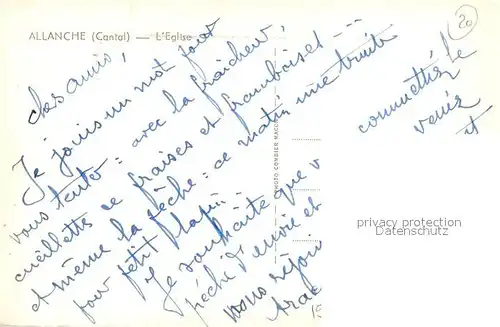 ALLANCHE (Cantal) — L'Eglise
20
chers amis,
Je joins un mot pour
vous tenter = avec la fraîcheur,
cueillette de fraises et framboises ---
et même la pêche = ce matin une truite
pour petit
Je souhaite que v
péché d'envie et
vous
commettiez le
venir
et
PHOTO COMBIER MACON
privacy protection
Datenschutz